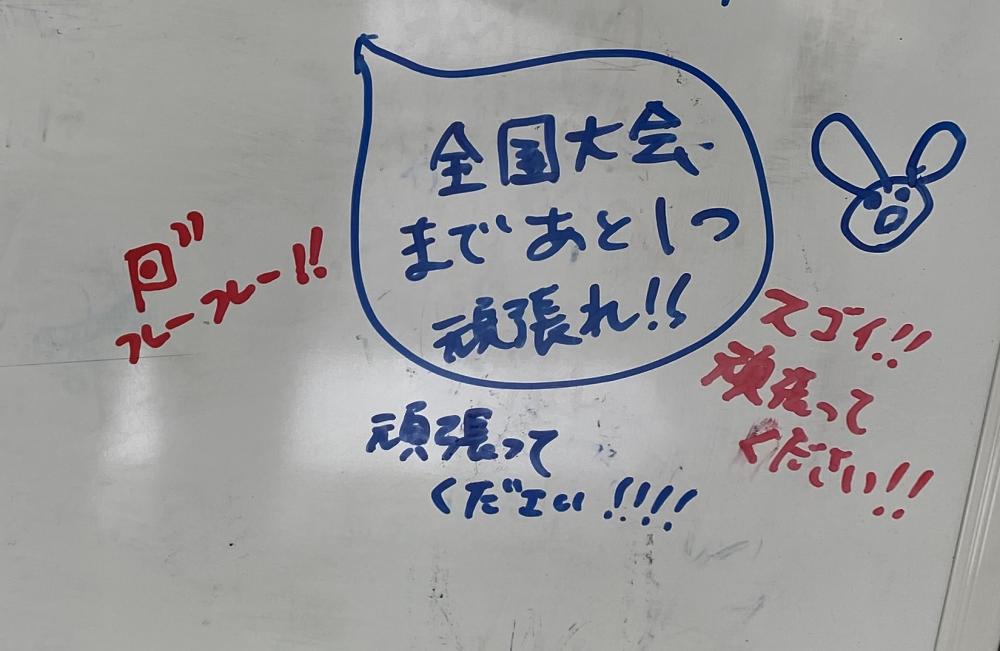 全国大会
まであと1つ
頑張れ!!
フレーフレー!!
スゴイ!!
頑張って
ください!!
頑張って
ください!!!!